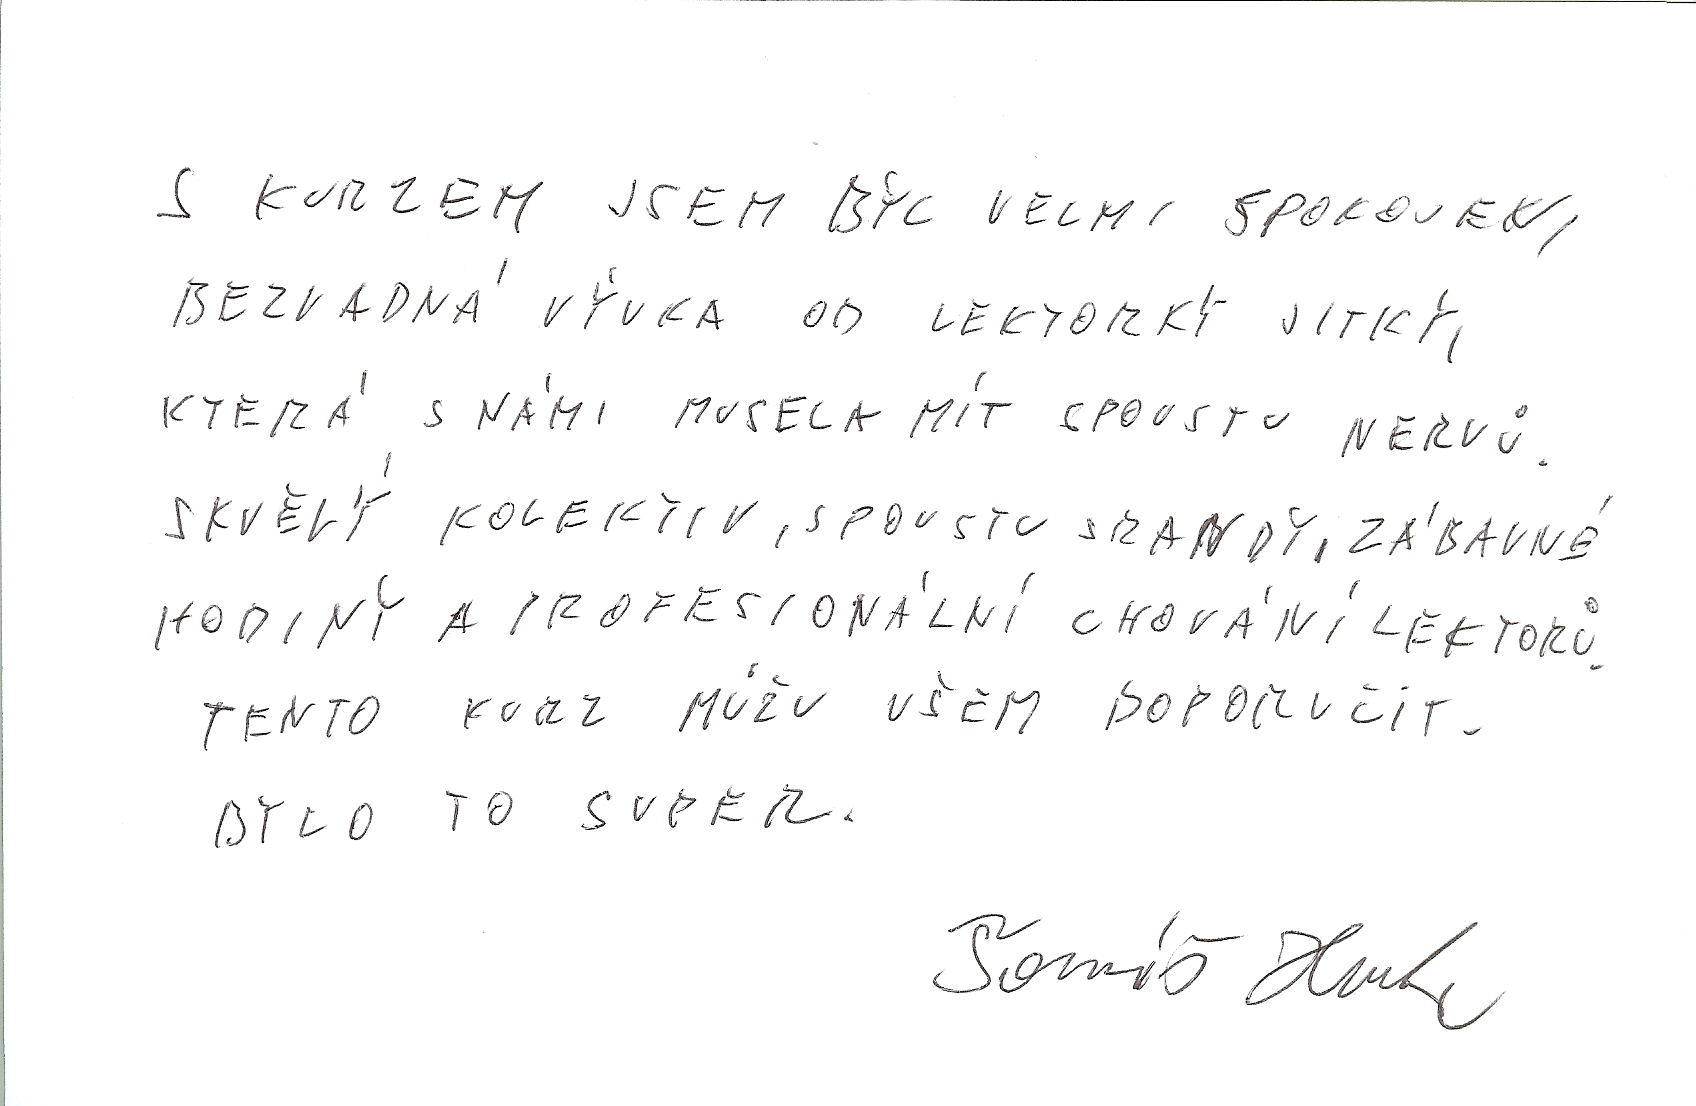 S KURZEM JSEM BYL VELMI SPOKOJEN,
BEZVADNÁ VÝUKA OD LEKTORKY JITKY,
KTERÁ S NÁMI MUSELA MÍT SPOUSTU NERVŮ.
SKVĚLÝ KOLEKTIV, SPOUSTU SRANDY, ZÁBAVNÉ
HODINY A PROFESIONÁLNÍ CHOVÁNÍ LEKTORŮ.
TENTO KURZ MŮŽU VŠEM DOPORUČIT.
BYLO TO SUPER.
Tomáš